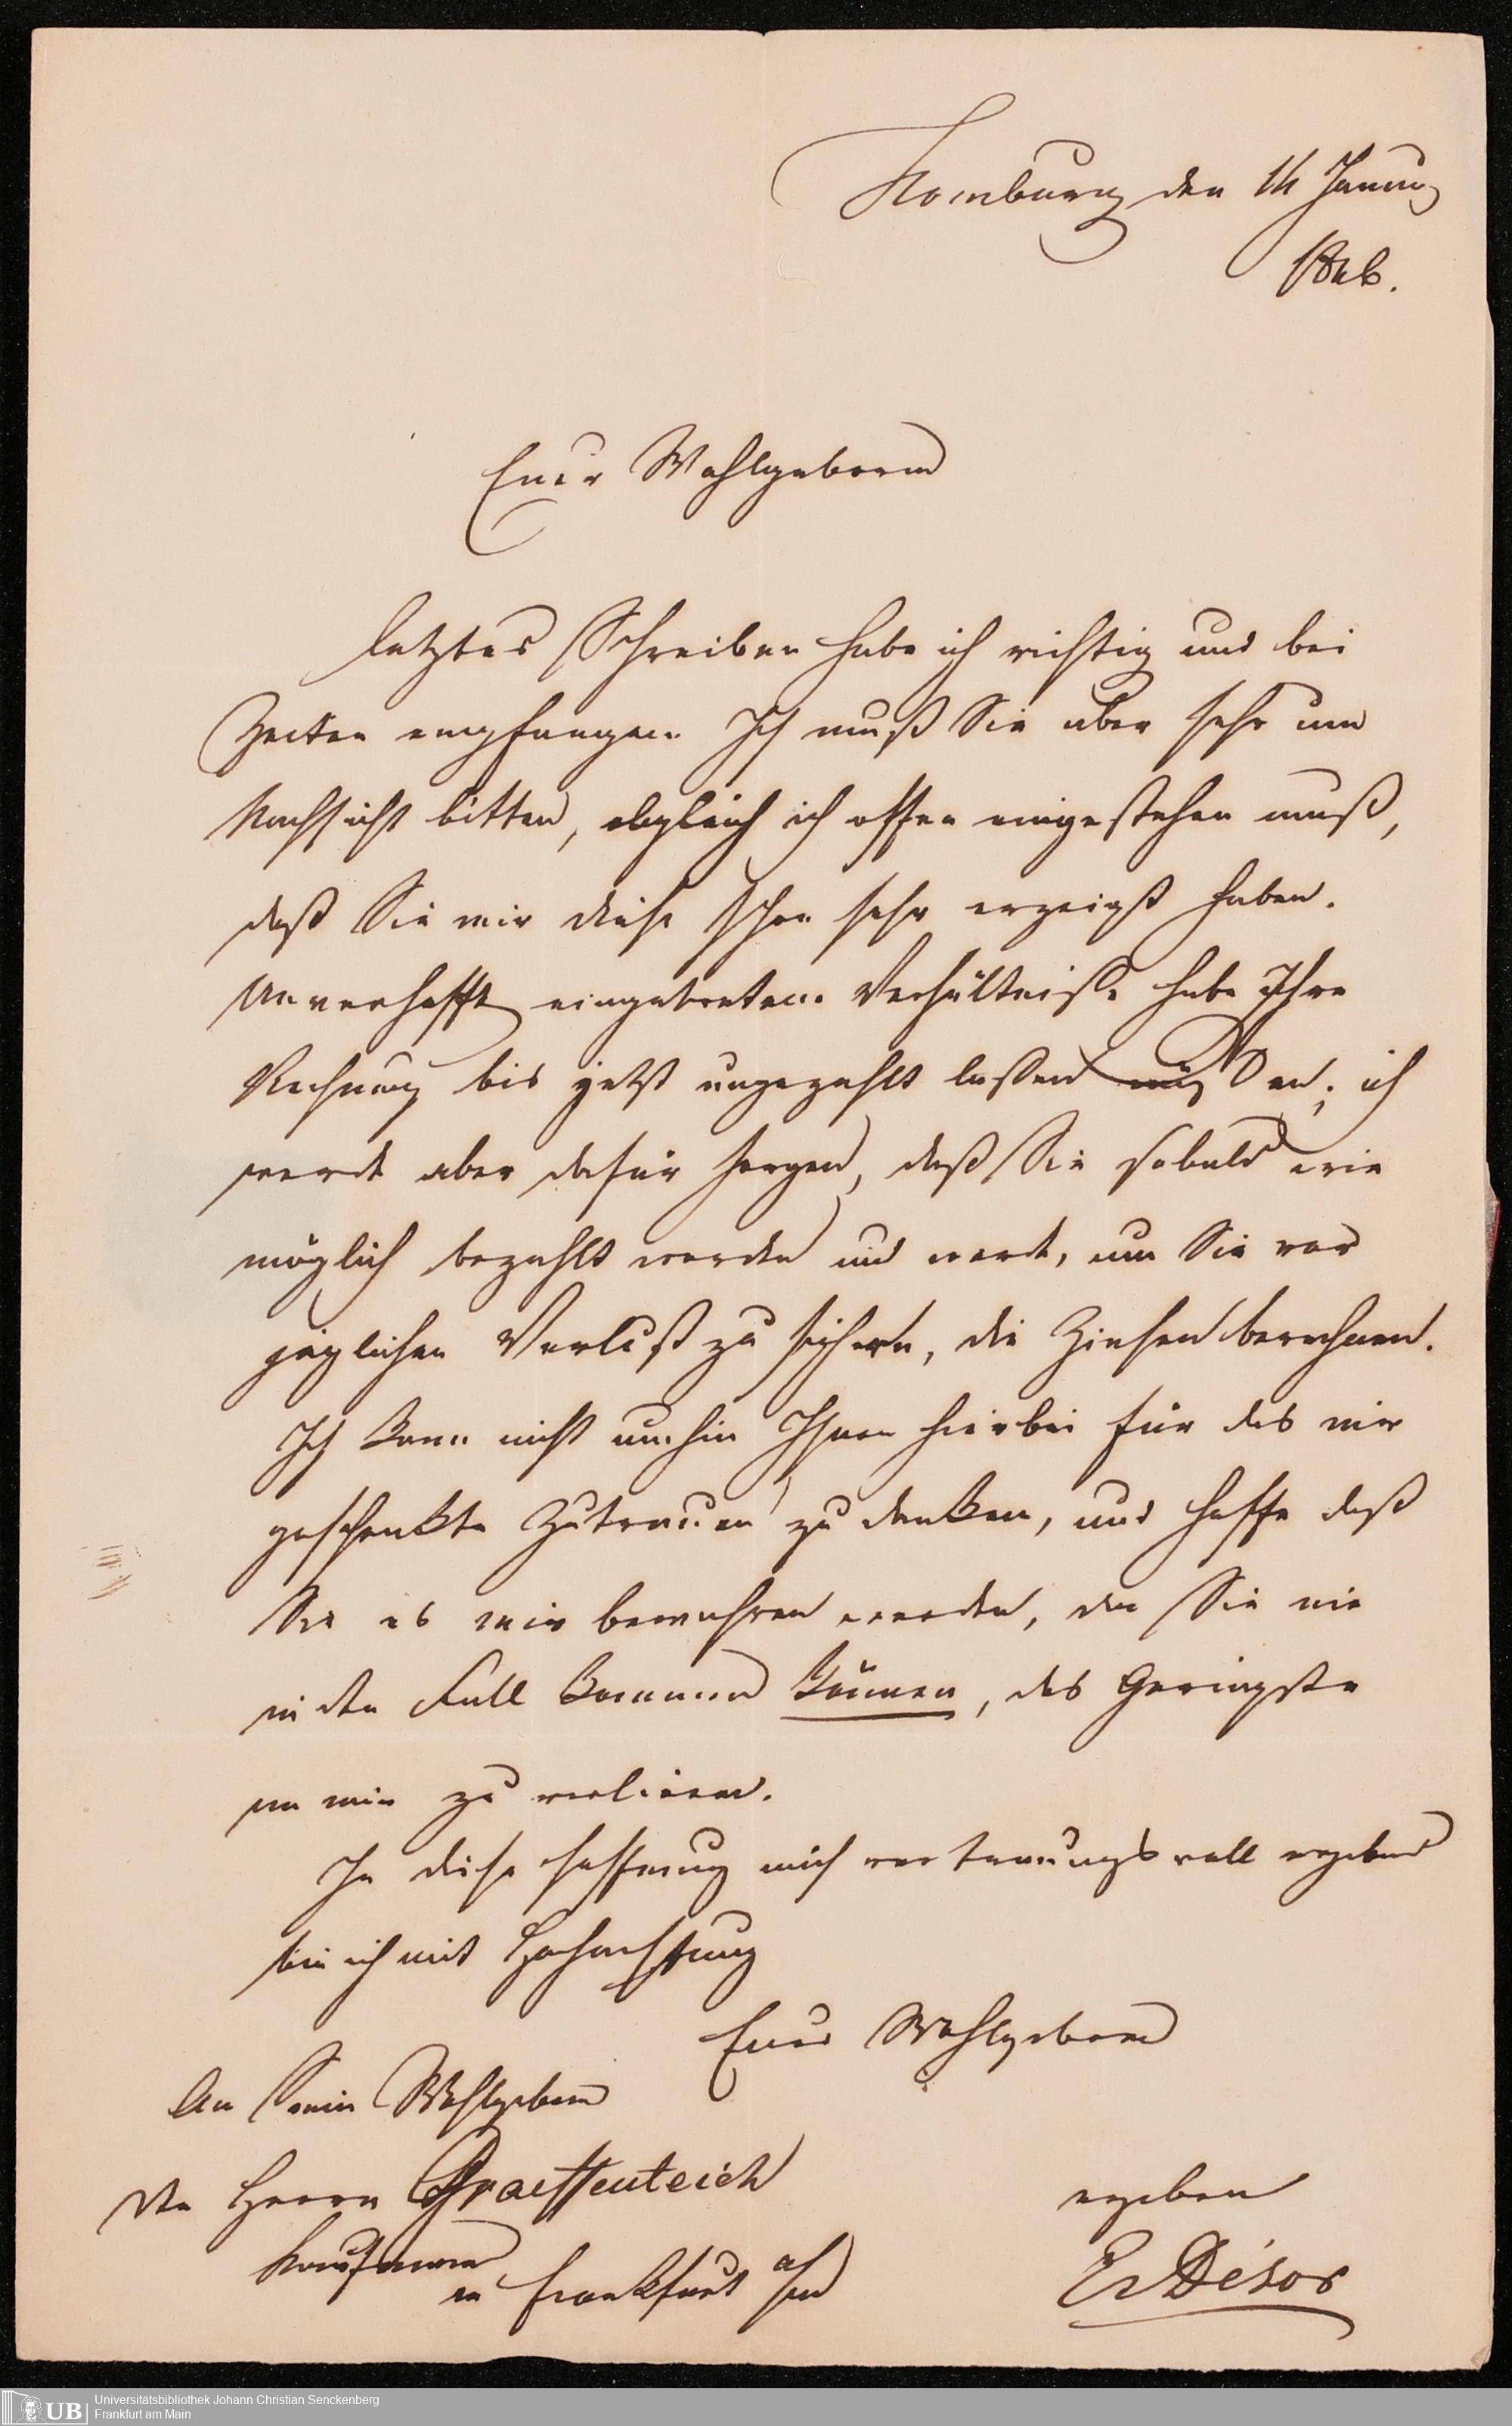 Homburg den 14 Januar
1846.
Euer Wohlgeboren
letztes Schreiben habe ich richtig und bei
Zeiten empfangen. Ich muß Sie aber sehr um
Nachsicht bitten, obgleich ich offen eingestehen muß,
daß Sie mir diese schon sehr erzeigt haben.
Unverhofft eingetretene Verhältnisse habe Ihre
Rechnung bis jetzt ungezahlt lassen müssen; ich
werde aber dafür sorgen, daß Sie sobald wie
möglich bezahlt werden und werde, um Sie vor
jeglichen Verlust zu sichern, die Zinsen berechnen.
Ich kann nicht umhin Ihnen hierbei für das mir
geschenkte Zutrauen zu danken, und hoffe daß
Sie es mir bewahren werden, da Sie nie
in den Fall kommen können, das Geringste
an mir zu verlieren.
In diese Hoffnung mich vertrauungsvoll ergebend
bin ich mit Hochachtung
Euer Wohlgeboren
An Seine Wohlgeboren
den Herrn Graeffenteich
Kaufmann
in Frankfurt a/m
ergebener
Ed Désor
UB
Universitätsbibliothek Johann Christian Senckenberg
Frankfurt am Main